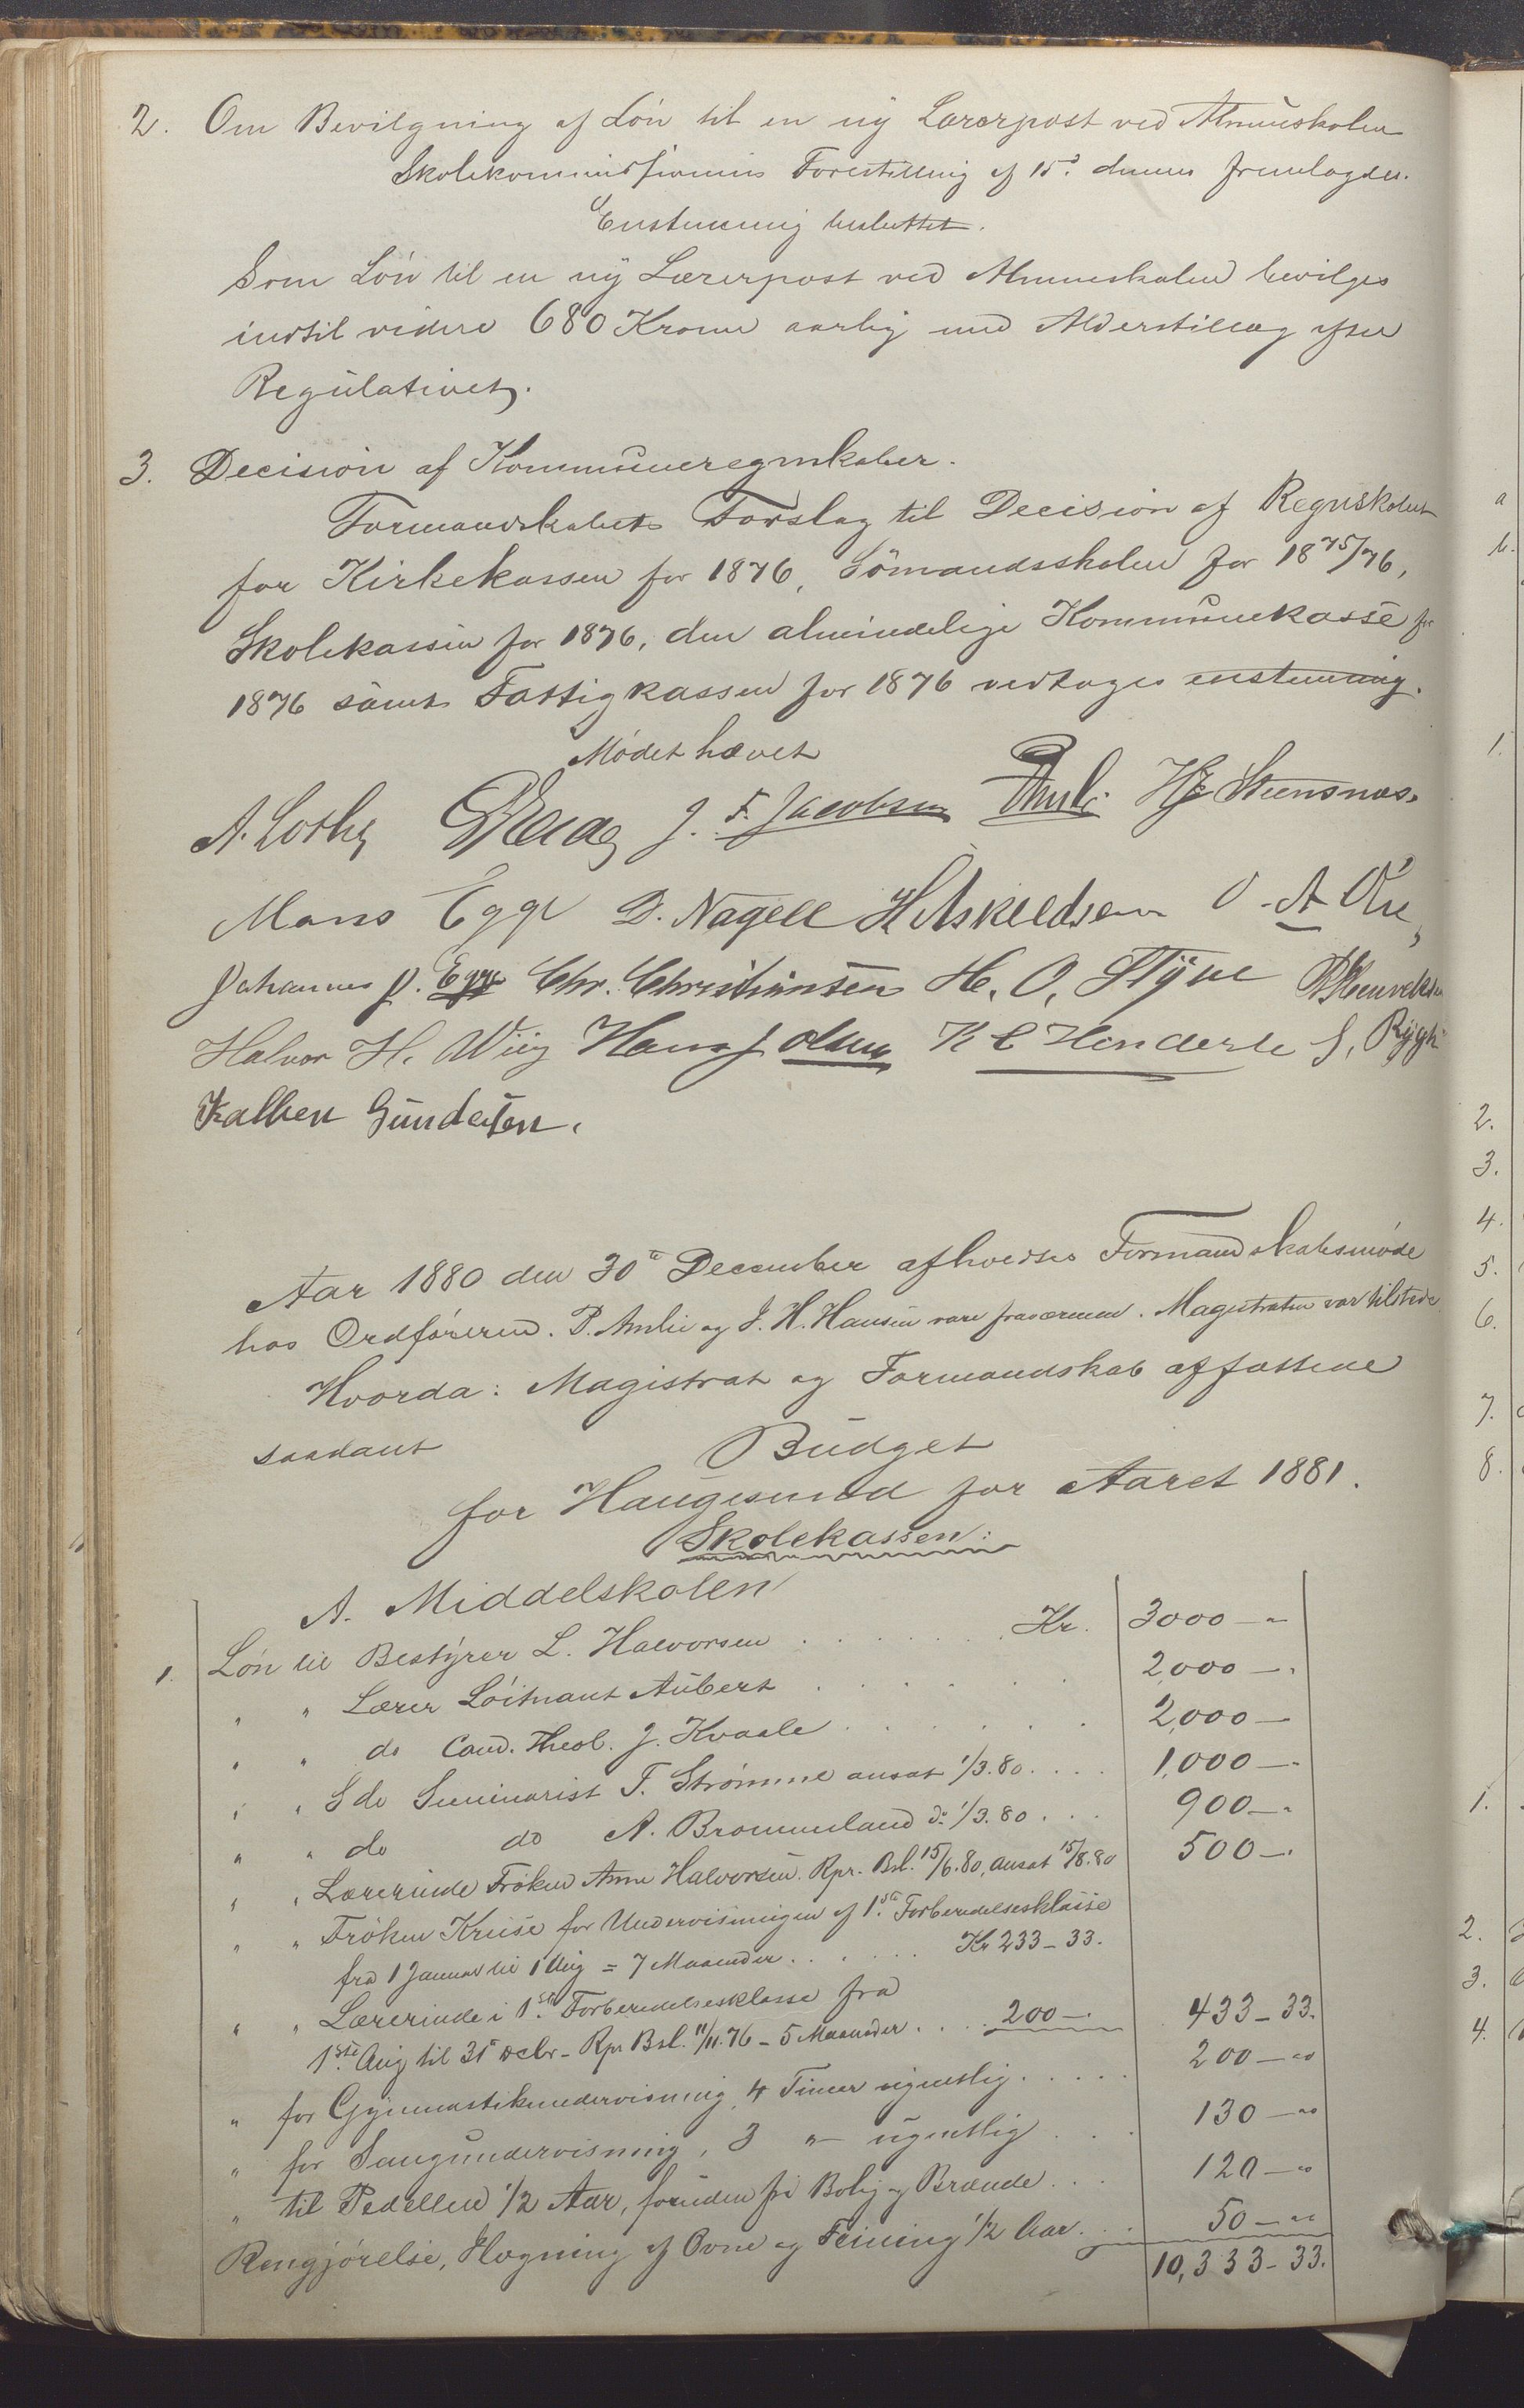 2. Om Bevilgning af Løn til en ny Lærerpost ved Almueskolen
Skolekommissionens Forestilling af 15de dennes fremlagdes.
Enstemmig besluttet.
Som Løn til en ny Lærerpost ved Almueskolen bevilges
indtil videre 680 Kroner aarlig med Alderstillæg efter
Regulativet.
3. Decision af Kommuneregnskaber.
Formandskabets Forslag til Decision af Regnskabet
for Kirkekassen for 1876, Sömandsskolen for 18 75/76,
Skolekassen for 1876, den almindelige Kommunekasse for
1876 samt Fattigkassen for 1876 vedtoges enstemmig.
Mødet hævet
J. F. Jacobsen
Mons Egge D. Nagell H. Askeldsen O. A.
Johannes J. Egge Chr. Christiansen H. O.
Halvor H. Wiig Hans J Olsen K C S. Rygh
Gundersen.
Aar 1880 den 30te December afholdtes Formandskabsmøde
hos Ordføreren. P. Amlie og J. H. Hansen vare fraværende. Magistraten var tilstede
Hvorda: Magistrat og Formandskab affattede
saadant Budget
for Haugesund for Aaret 1881.
Skolekassen:
A. Middelskolen
1. Løn til Bestyrer L. Halvorsen . . . . . . . Kr. 3000 — "
" " Lærer Löitnant Aubert . . . . . . 2,000 — "
" " do Cand. Theol. J. Kvaale . . . . . . 2,000 —
" " do Seminarist T. Strømme ansat 1/3.80 . . . . 1,000 — "
" " do do A. Brommeland do 1/3.80 . . . 900 — "
" " Lærerinde Frøken Anne Halvorsen. Rpr. Bsl. 15/6.80, ansat 15/8.80 500 — "
" " Frøken Kruse for Undervisningen af 1ste Forberedelsesklasse
fra 1 Januar til 1 Aug = 7 Maaneder . . . . . . Kr 233 - 33.
" " Lærerinde i 1ste Forberedelsesklasse fra
1ste Aug til 31 Decbr - Rpr Bsl. 11/11.76 - 5 Maaneder . . . . 200 — " 433 - 33.
" for Gymnastikundervisning, 4 Timer ugentlig . . . . . 200 — "
" for Sangundervisning, 3 " ugentlig . . . 130 — "
" til Pedellen 1/2 Aar, foruden fri Bolig og Brænde . . . 120 — "
Rengjørelse, Ilægning af Ovne og Feining 1/2 Aar . . . 50 — "
10,333 - 33.
a
b.
1.
2.
3.
4.
5.
6.
7.
8.
1.
2.
3.
4.